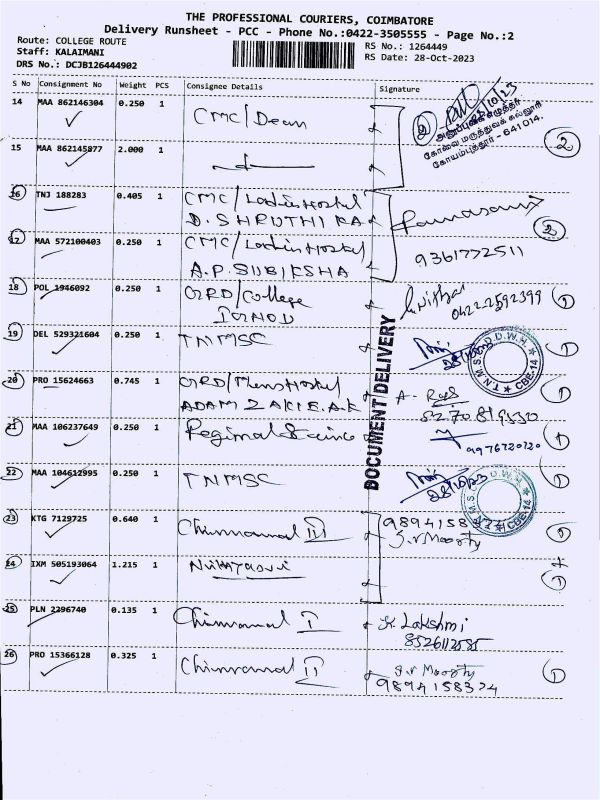 THE PROFESSIONAL COURIERS, COIMBATORE
Delivery Runsheet - PCC - Phone No.:0422-3505555 - Page No.:2
Route: COLLEGE ROUTE
RS No.: 1264449
Staff: KALAIMANI
RS Date: 28-Oct-2023
DRS No.: DCJB126444902
S No Consignment No Weight PCS Consignee Details Signature
14 MAA 862146304 0.250 1 CMC/Dean
அறுப்புகை எழுத்தர்
கோவை மருத்துவக் கல்லூரி
கோயம்புத்தூர் - 641 014.
2
15 MAA 862145877 2.000 1
16 TNJ 188283 0.405 1 CMC/Ladies Hostel
D. SHRUTHIKA
2
17 MAA 572100403 0.250 1 CMC/Ladies Hostel
A.P. SUBIKSHA
9361772511
18 POL 1946092 0.250 1 GRD/College
0422-2592399 1
19 DEL 529321604 0.250 1 TNMSC
T.N.M.S. D.D.W.H. CBE-14
1
DOCUMENT DELIVERY
20 PRO 15624663 0.745 1 GRD/Mens Hostel
ADAM ZAKIE.A.K
1
21 MAA 106237649 0.250 1 Regional Science
9976720720 1
22 MAA 104612995 0.250 1 TNMSC
28/10/23
T.N.M.S. D.D.W.H. CBE-14
1
23 KTG 7129725 0.640 1 Chinnamal III
S.V Moorty
1
24 IXM 505193064 1.215 1
1
25 PLN 2296740 0.135 1 Chinnamal I
K. Lakshmi
26 PRO 15366128 0.325 1 Chinnamal II
S.V Moorty 1
9894158324